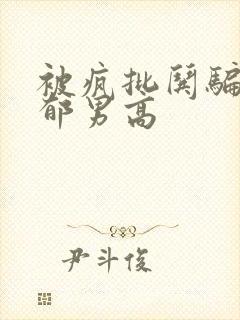 被疯批阴骗
郁男高
尹斗俊